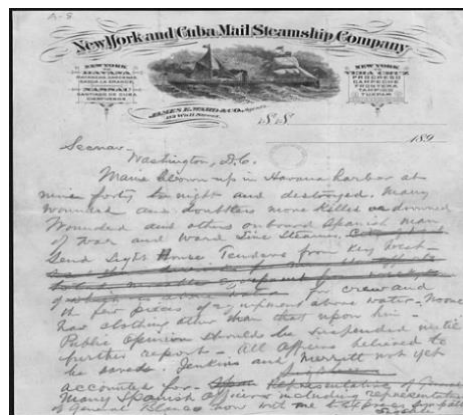 A-8
New York and Cuba Mail Steamship Company
NEW YORK
HAVANA
NASSAU
SANTIAGO DE CUBA
CIENFUEGOS
NEW YORK
VERA CRUZ
PROGRESO
CAMPECHE
FRONTERA
TAMPICO
TUXPAM
JAMES E. WARD & CO. Agents
113 Wall Street.
S.S.
189
Secnav,
Washington, D.C.
Maine blown up in Havana harbor at
nine forty to night and destroyed. Many
wounded and doubtless more killed or drowned
Wounded and others onboard Spanish man
of war and Ward Line Steamer
Send Light House Tenders from Key West
for crew and
the few pieces of equipment above water. Noone
has clothing other than that upon him.
Public opinion should be suspended until
further report. All officers believed to
be saved. Jenkins and Merritt not yet
accounted for.
Many Spanish officers including representatives
of General Blanco now with me to express sympathy
Sigsbee